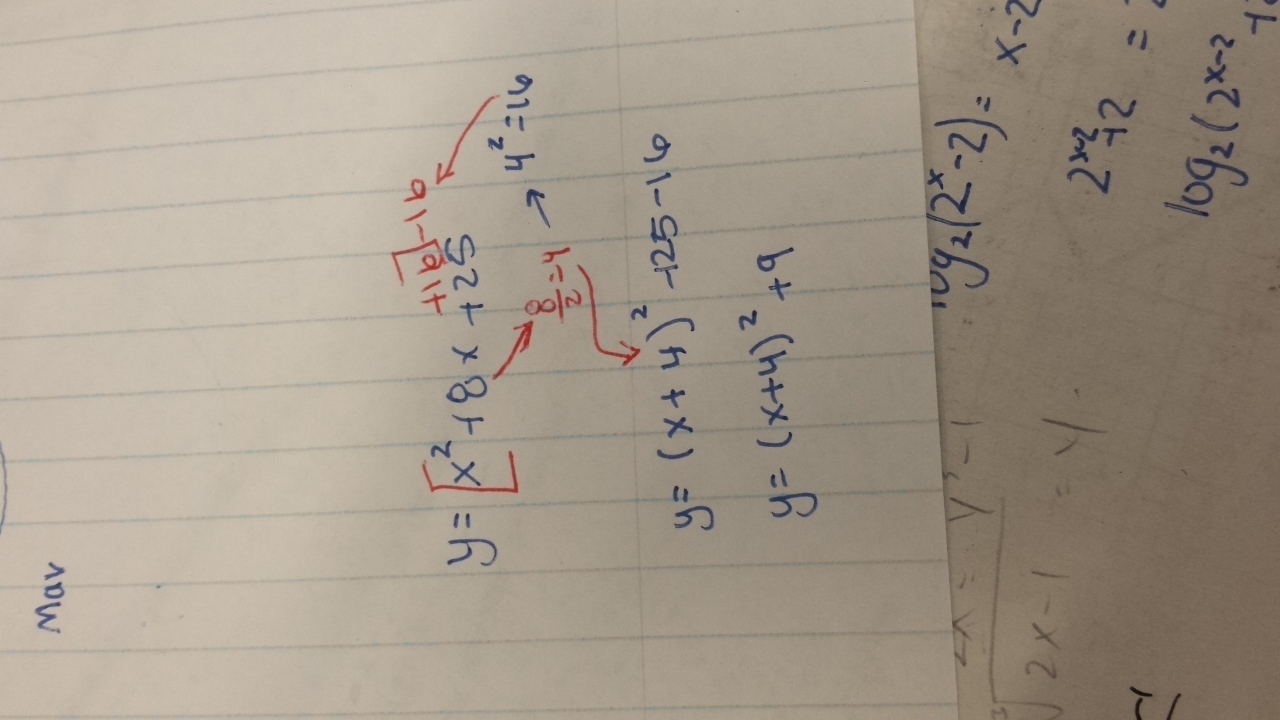 Mar
+16-16
y = [x² +8x +25
8/2=4 → 4²=16
y= (x+4)² +25-16
y= (x+4)² +9
log₂(2ˣ-2)= x-2
2ˣ⁻² +2 =
log₂(2ˣ⁻²
2x-1 = y